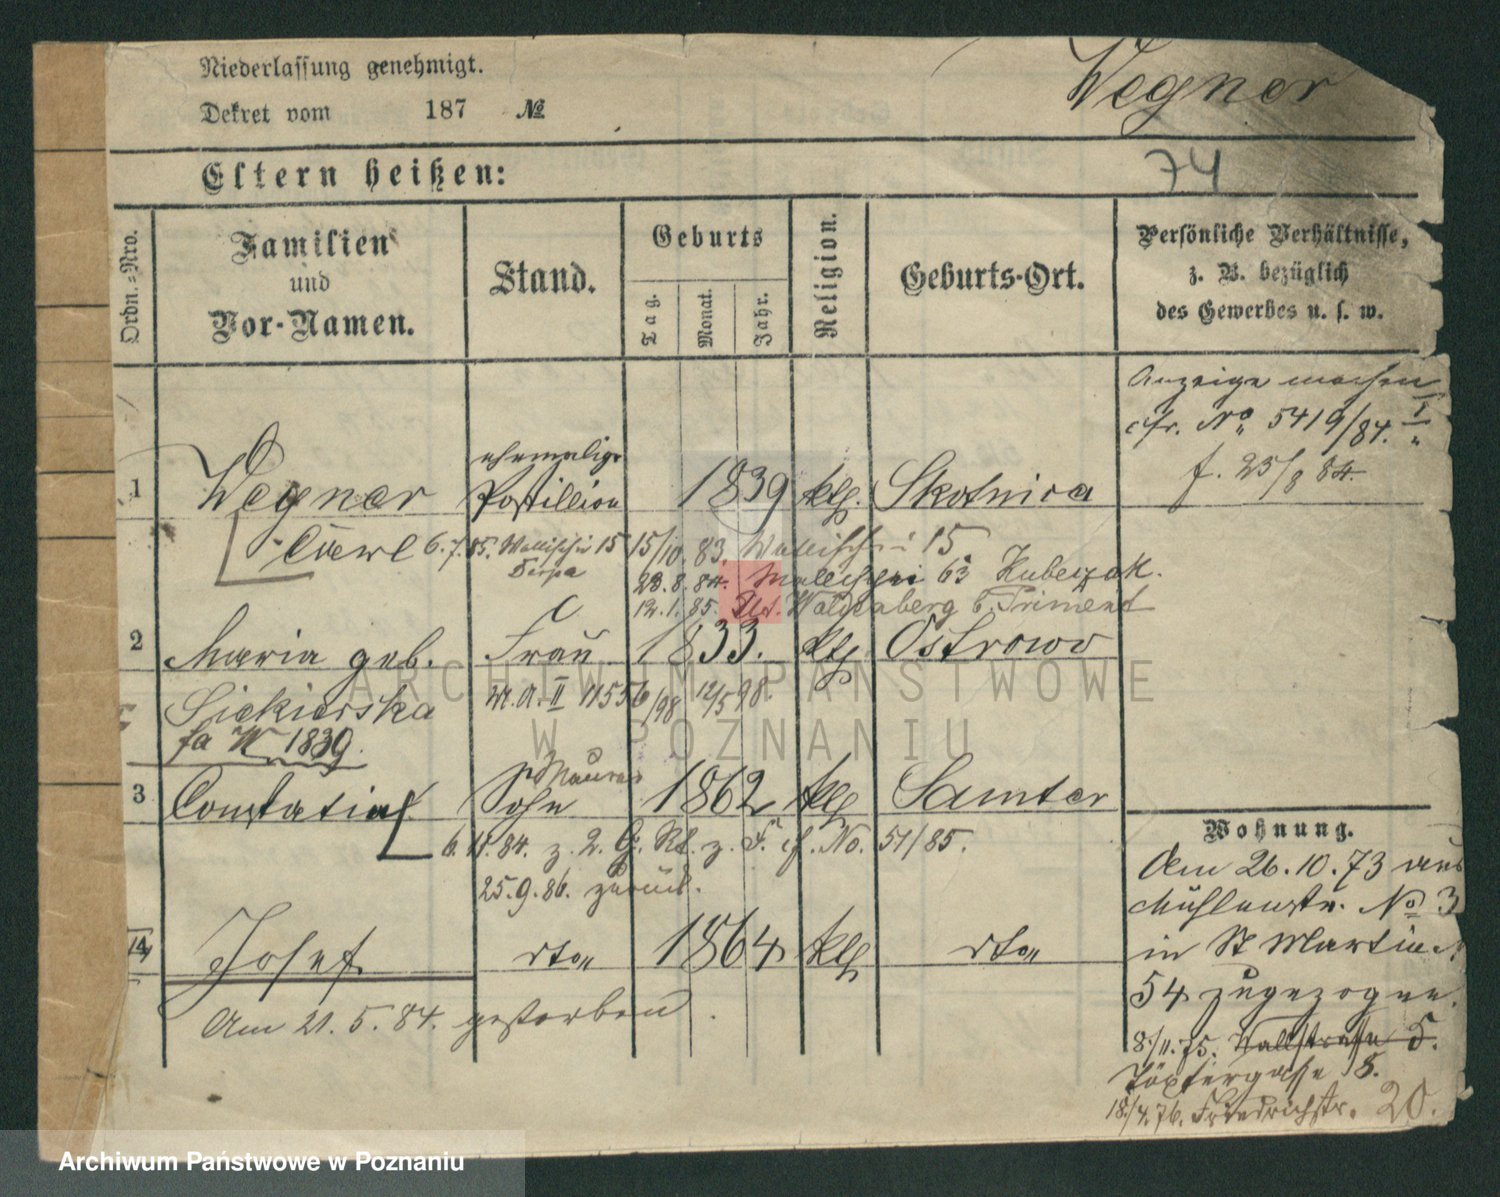 Niederlassung genehmigt.
Wegner
Dekret vom 187 №
74
Eltern heißen:
Ordn.-Nro.
Familien
und
Vor-Namen.
Stand.
Geburts
Tag.
Monat.
Jahr.
Religion.
Geburts-Ort.
Persönliche Verhältnisse,
z. B. bezüglich
des Gewerbes u. s. w.
Anzeige machen
cfr. No 5419/84. I
f. 25/8 84.
1 Wegner ehemalige Postillion 1839 klh. Skotnica
Carl 6.7.85. Wallischei 15 15/10.83. Wallischei 15
23.8.84. Wallischei 63 Kubeczak.
12.1.85. Waldenberg b. Priment
2 Maria geb. Frau 1833. klh Ostrowo
Siekierska M.A. II 11556/98 12/5 98.
fa W 1839.
3 Constatin Sohn Maurer 1862 klh Samter
6.11.84. z. 2. G. Rt. z. F. cf. No. 51/85.
25.9.86. zurück.
4 Josef dto 1864 klh dto
Am 21.5.84. gestorben.
Wohnung.
Am 26.10.73 aus
Mühlenstr. No 3
in St Martin
54 zugezogen.
8/11.75. Wallstraße 5.
Töpfergasse 5.
18/4.76. Friedrichstr. 20.
ARCHIWUM PAŃSTWOWE
W POZNANIU
Archiwum Państwowe w Poznaniu